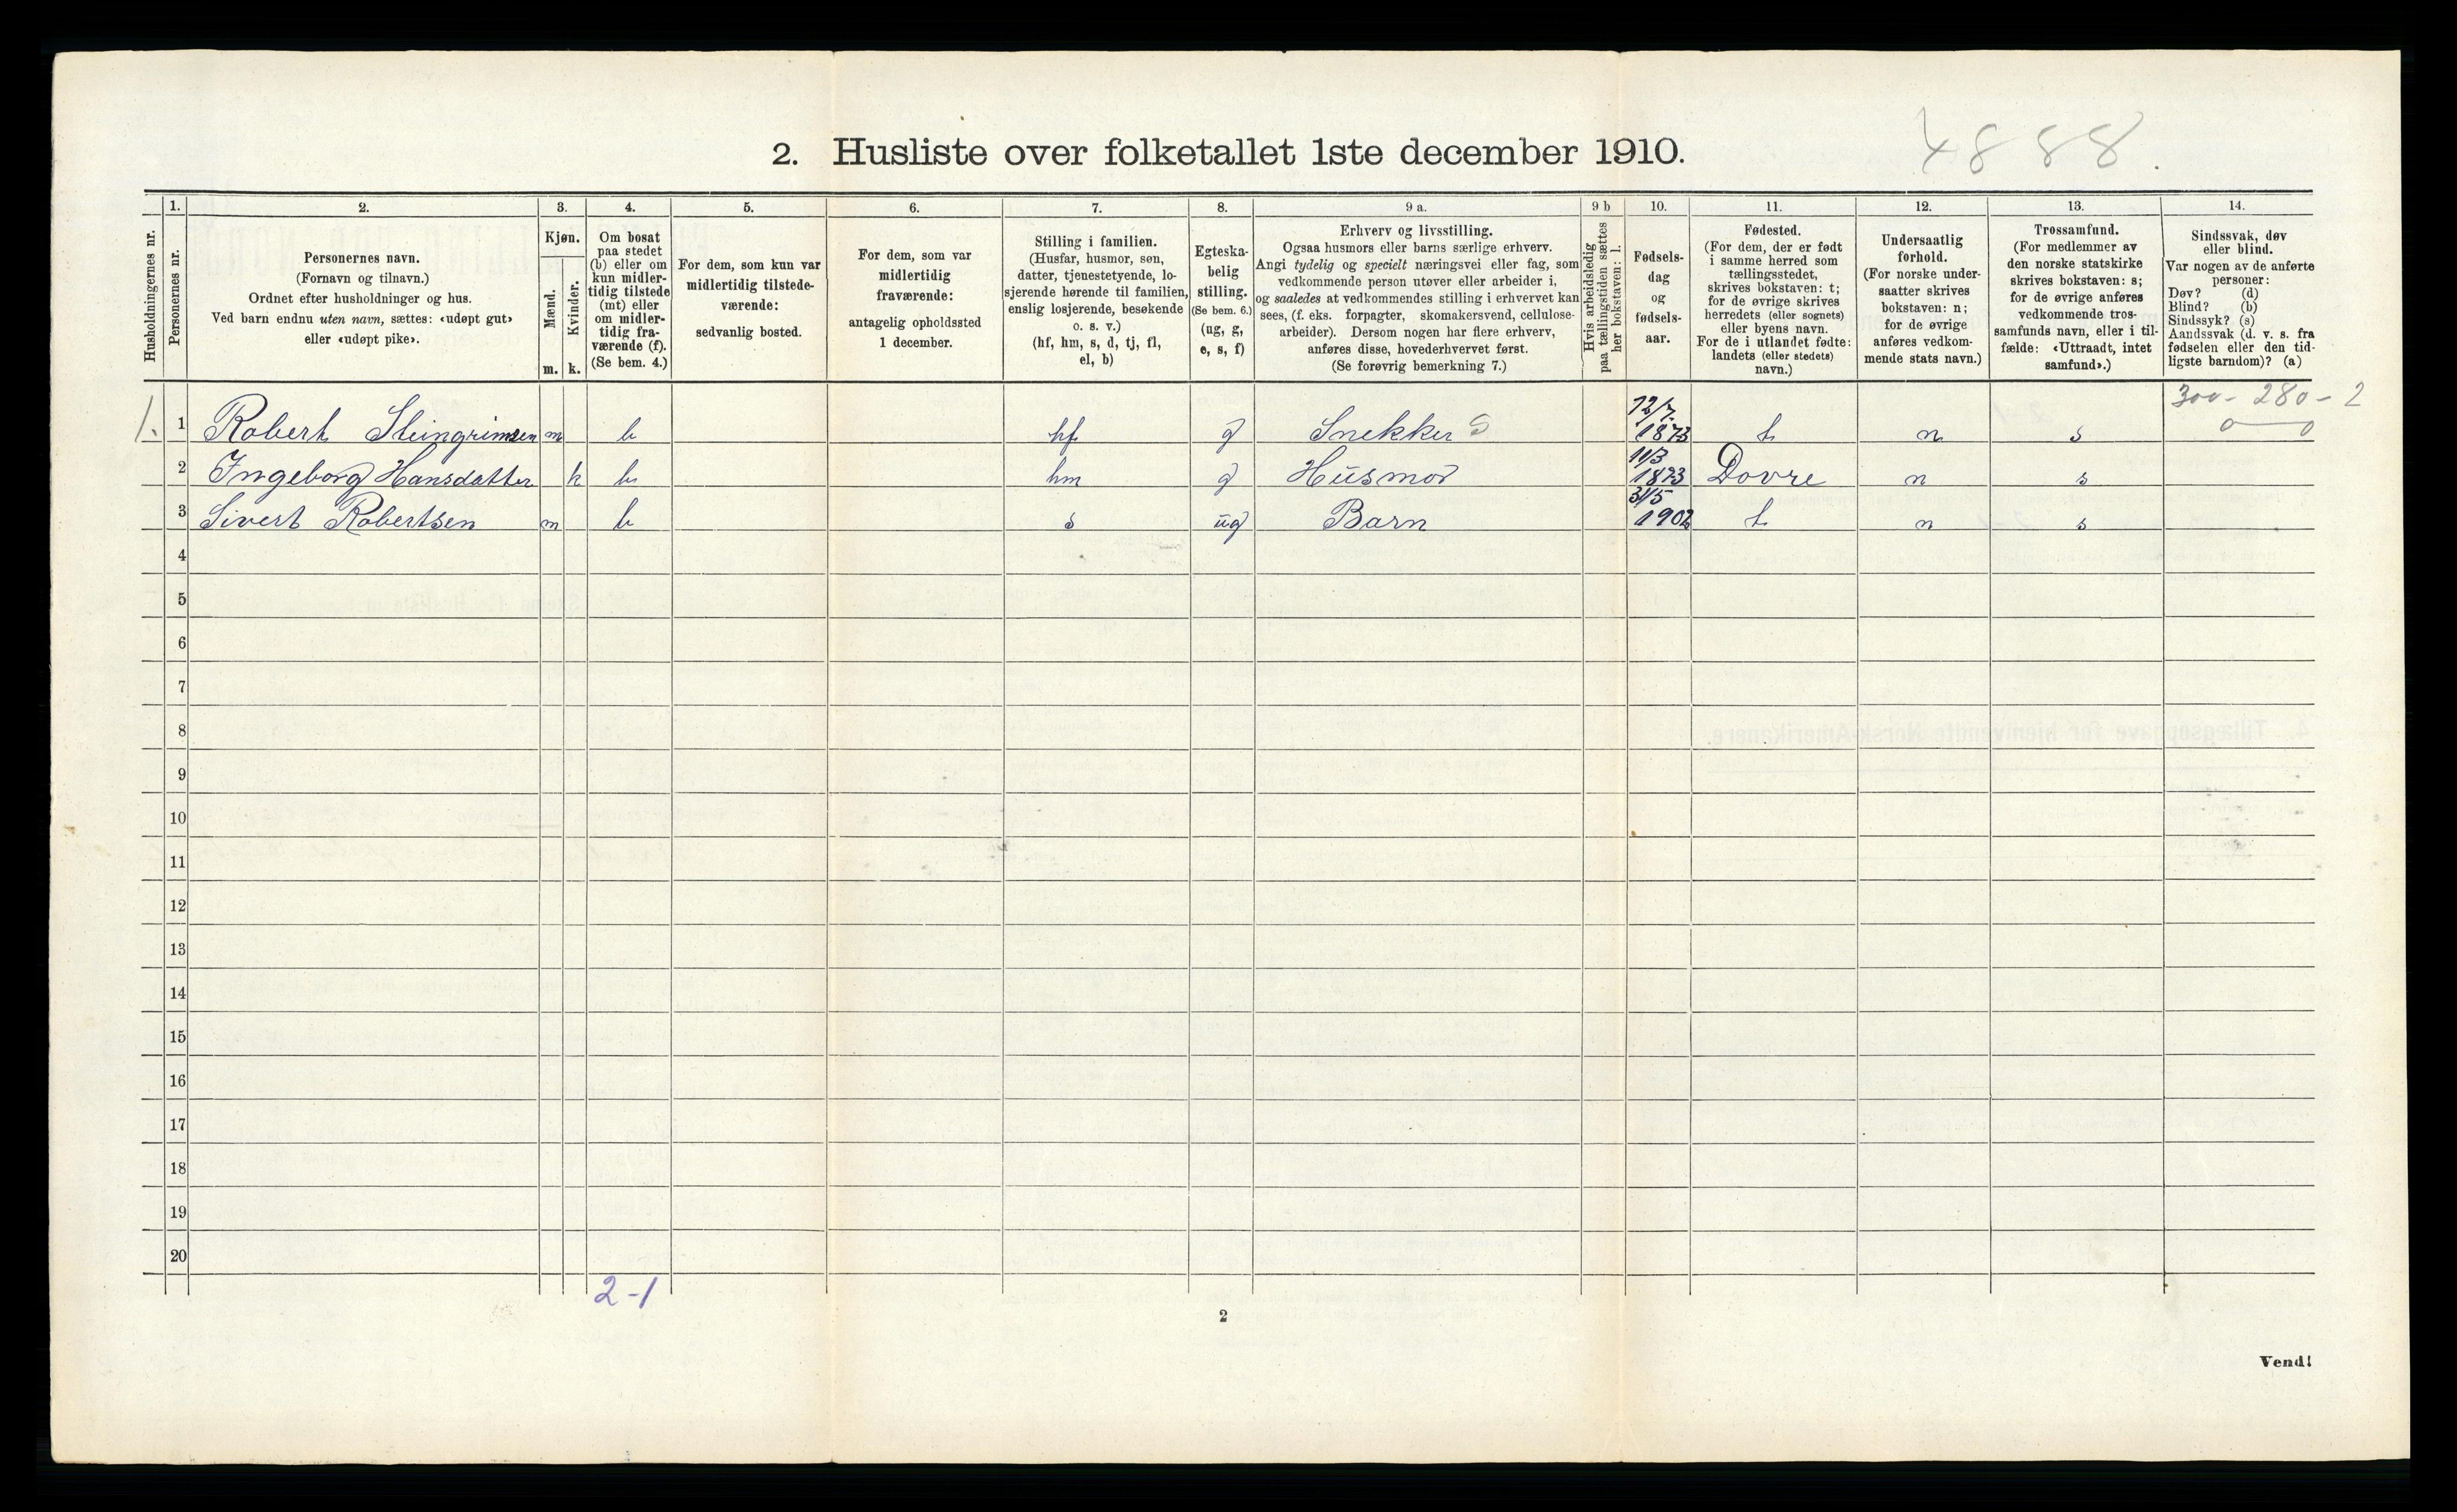 4888.
2. Husliste over folketallet 1ste december 1910.
Husholdningernes nr.
1.
Personernes nr.
2.
Personernes navn.
(Fornavn og tilnavn.)
Ordnet efter husholdninger og hus.
Ved barn endnu uten navn, sættes: «udøpt gut»
eller «udøpt pike».
3.
Kjøn.
Mænd.
Kvinder.
m. k.
4.
Om bosat
paa stedet
(b) eller om
kun midler-
tidig tilstede
(mt) eller
om midler-
tidig fra-
værende (f).
(Se bem. 4.)
5.
For dem, som kun var
midlertidig tilstede-
værende:
sedvanlig bosted.
6.
For dem, som var
midlertidig
fraværende:
antagelig opholdssted
1 december.
7.
Stilling i familien.
(Husfar, husmor, søn,
datter, tjenestetyende, lo-
sjerende hørende til familien,
enslig losjerende, besøkende
o. s. v.)
(hf, hm, s, d, tj, fl,
el, b)
8.
Egteska-
belig
stilling.
(Se bem. 6.)
(ug, g,
e, s, f)
9 a.
Erhverv og livsstilling.
Ogsaa husmors eller barns særlige erhverv.
Angi tydelig og specielt næringsvei eller fag, som
vedkommende person utøver eller arbeider i,
og saaledes at vedkommendes stilling i erhvervet kan
sees, (f. eks. forpagter, skomakersvend, cellulose-
arbeider). Dersom nogen har flere erhverv,
anføres disse, hovederhvervet først.
(Se forøvrig bemerkning 7.)
9 b
Hvis arbeidsledig
paa tællingstiden sættes
her bokstaven: l.
10.
Fødsels-
dag
og
fødsels-
aar.
11.
Fødested.
(For dem, der er født
i samme herred som
tællingsstedet,
skrives bokstaven: t;
for de øvrige skrives
herredets (eller sognets)
eller byens navn.
For de i utlandet fødte:
landets (eller stedets)
navn.)
12.
Undersaatlig
forhold.
(For norske under-
saatter skrives
bokstaven: n;
for de øvrige
anføres vedkom-
mende stats navn.)
13.
Trossamfund.
(For medlemmer av
den norske statskirke
skrives bokstaven: s;
for de øvrige anføres
vedkommende tros-
samfunds navn, eller i til-
fælde: «Uttraadt, intet
samfund».)
14.
Sindssvak, døv
eller blind.
Var nogen av de anførte
personer:
Døv? (d)
Blind? (b)
Sindssyk? (s)
Aandssvak (d. v. s. fra
fødselen eller den tid-
ligste barndom)? (a)
300 - 280 - 2
0 — 0
1. 1 Robert Steingrimsen m b hf g Snekker S 12/7. 1873 t n s
2 Ingeborg Hansdatter k b hm g Husmor 11/3 1873 Dovre n s
3 Sivert Robertsen m b s ug Barn 31/5 1902 t n s
4
5
6
7
8
9
10
11
12
13
14
15
16
17
18
19
20
2-1
2
Vend!